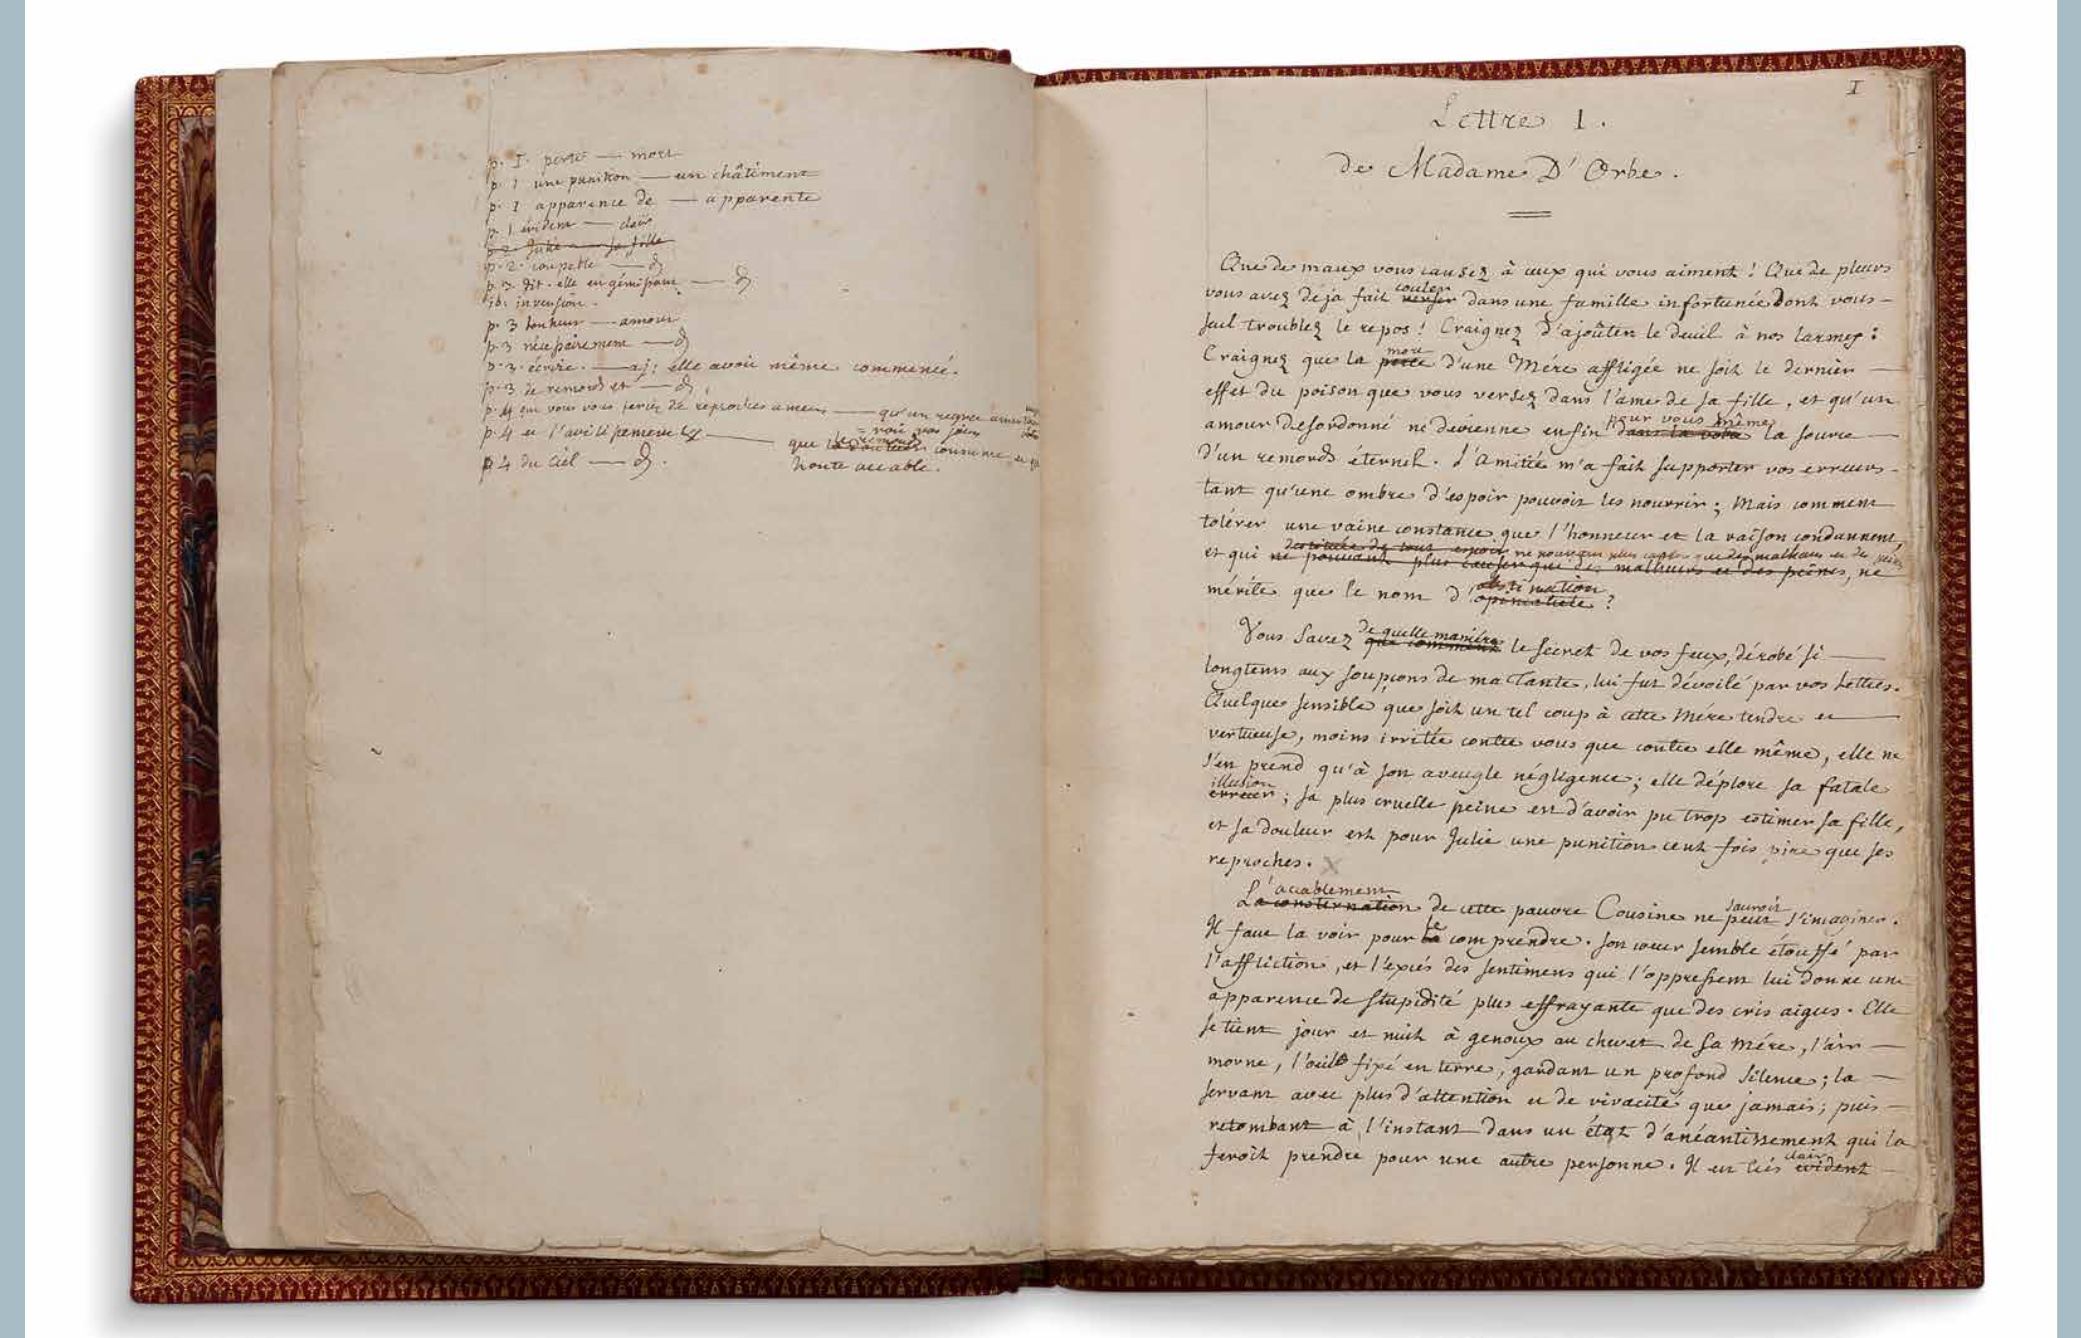 p. I. perte — mort
p. 1 une punition — un châtiment
p. 1 apparence de — apparente
p. 1 évident — clair
p. 2. Julie — sa fille
p. 2. coupable —
p. 3. dit-elle en gémissant —
ib. invension.
p. 3 bonheur — amour
p. 3 nécessairement —
p. 3. écrire. — aj: elle avoit même commencé.
p. 3 de remords et —
p. 4 que vous vous servir de reproches amers — qu'un regret amer
= vous vos
p. 4 et l'avilissement — que la douleur le remords consume et
honte accable.
p 4 du Ciel —
I
Lettre I.
de Madame D'Orbe.
Que de maux vous causez à ceux qui vous aiment! Que de pleurs
couler
vous avez déja fait verser dans une famille infortunée dont vous
seul troublez le repos! Craignez d'ajoûter le deuil à nos larmes:
mort
Craignez que la perte d'une Mére affligée ne soit le dernier
effet du poison que vous versez dans l'ame de sa fille, et qu'un
pour vous même
amour desordonné ne devienne enfin dans la votre la source
d'un remords éternel. L'amitié m'a fait supporter vos erreurs
tant qu'une ombre d'espoir pouvoit les nourrir; Mais comment
tolérer une vaine constance que l'honneur et la raison condannent,
destituée de tout espoir ne pouvant plus causer que des malheurs et des peines
et qui ne pouvant plus causer que des malheurs et des peines, ne
obstination
mérite que le nom d'opiniatreté?
de quelle maniére
Vous savez que comment le secret de vos feux, dérobé si
longtems aux soupçons de ma Tante, lui fut dévoilé par vos Lettres.
Quelque sensible que soit un tel coup à cette Mére tendre et
vertueuse, moins irritée contre vous que contre elle même, elle ne
s'en prend qu'à son aveugle négligence; elle déplore sa fatale
illusion
erreur; sa plus cruelle peine est d'avoir pu trop estimer sa fille,
et sa douleur est pour Julie une punition cent fois pire que ses
reproches. X
L'accablement
La consternation de cette pauvre Cousine ne peut s'imaginer.
sauroit
le
Il faut la voir pour la comprendre. Son cœur semble étouffé par
l'affliction, et l'excés des sentimens qui l'oppressent lui donne une
apparence de stupidité plus effrayante que des cris aigus. Elle
se tient jour et nuit à genoux au chevet de sa Mére, l'air
morne, l'œil fixé en terre, gardant un profond silence; la
servant avec plus d'attention et de vivacité que jamais; puis
retombant à l'instant dans un état d'anéantissement qui la
feroit prendre pour une autre personne. Il est très évident
clair